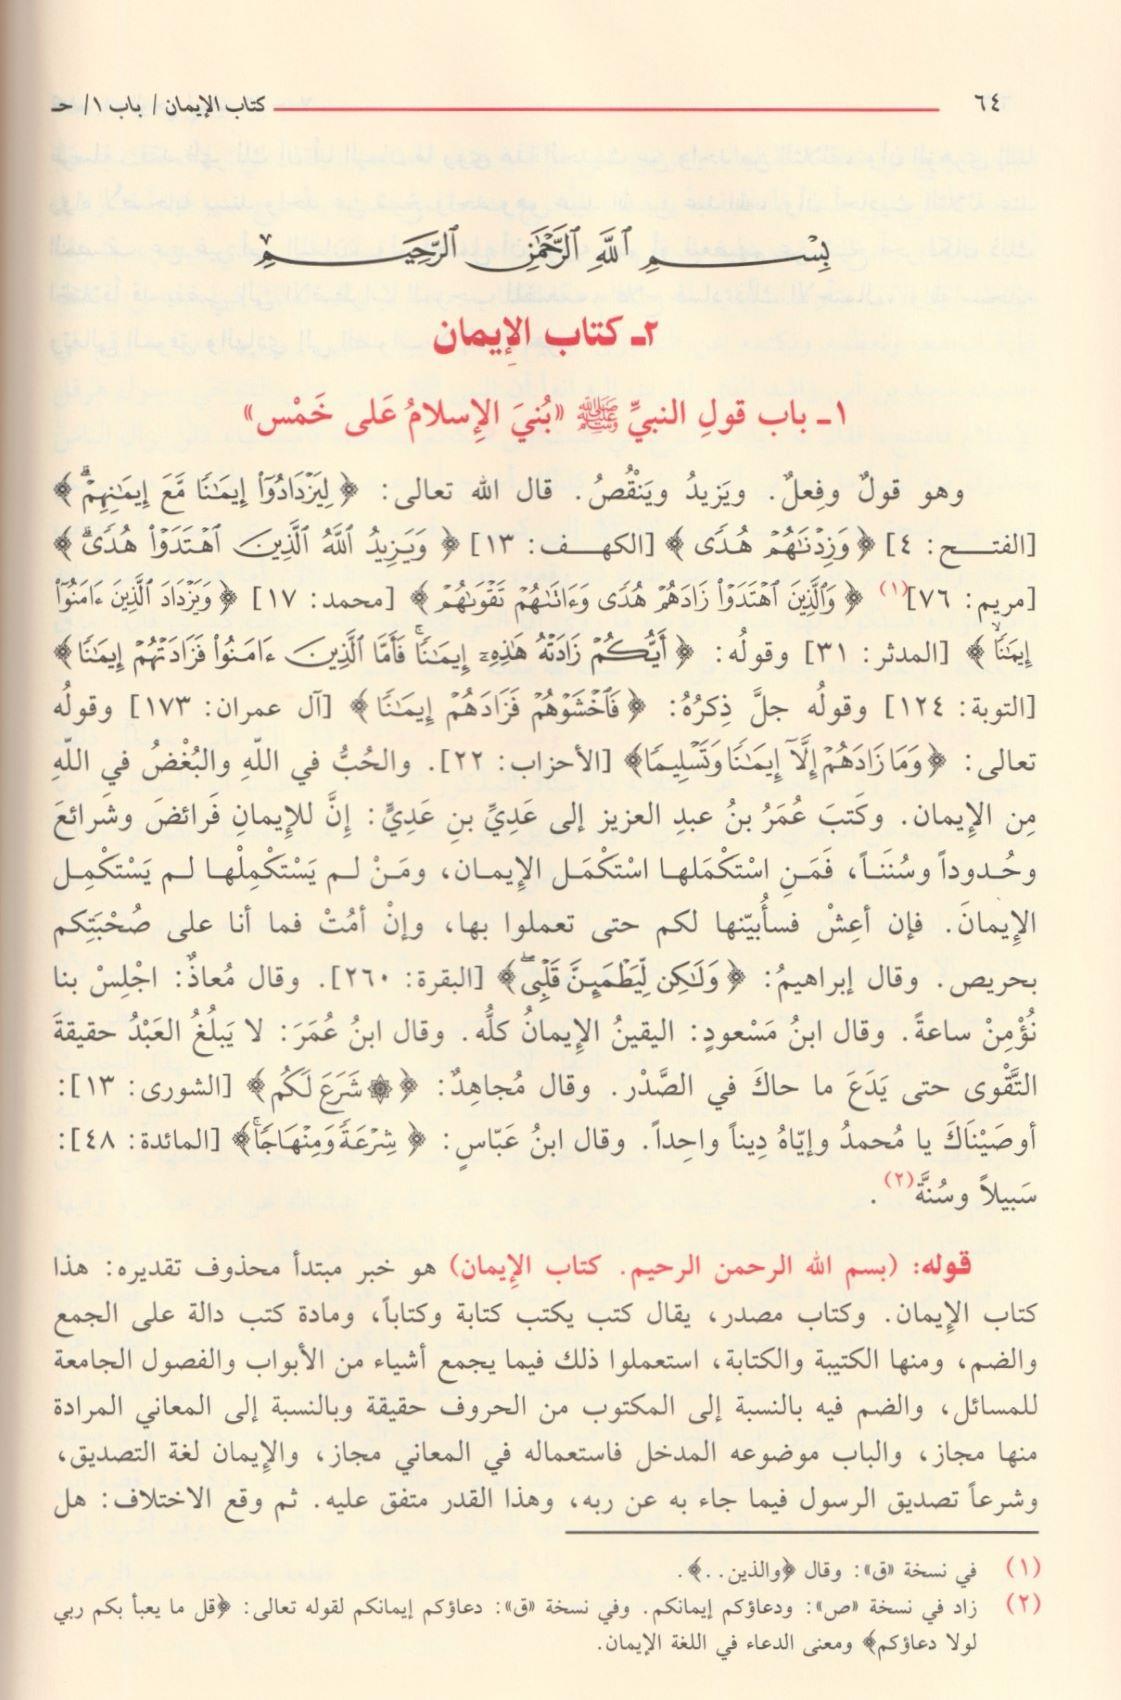 ٦٤ كتاب الإيمان / باب ١/ حـ
بِسْمِ ٱللَّهِ ٱلرَّحْمَٰنِ ٱلرَّحِيمِ
٢ـ كتاب الإِيمان
١ـ باب قولِ النبيِّ ﷺ «بُنيَ الإِسلامُ عَلى خَمْس»
وهو قولٌ وفِعلٌ. ويَزيدُ ويَنْقُصُ. قال الله تعالى: ﴿ لِيَزْدَادُوٓا۟ إِيمَـٰنًا مَّعَ إِيمَـٰنِهِمْ ۗ ﴾
[الفتـــح: ٤] ﴿ وَزِدْنَـٰهُمْ هُدًى ﴾ [الكهــف: ١٣] ﴿ وَيَزِيدُ ٱللَّهُ ٱلَّذِينَ ٱهْتَدَوْا۟ هُدًى ۗ ﴾
[مريم: ٧٦](١) ﴿ وَٱلَّذِينَ ٱهْتَدَوْا۟ زَادَهُمْ هُدًى وَءَاتَىٰهُمْ تَقْوَىٰهُمْ ﴾ [محمد: ١٧] ﴿ وَيَزْدَادَ ٱلَّذِينَ ءَامَنُوٓا۟
إِيمَـٰنًا ۙ ﴾ [المدثر: ٣١] وقولُه: ﴿ أَيُّكُمْ زَادَتْهُ هَـٰذِهِۦٓ إِيمَـٰنًا ۚ فَأَمَّا ٱلَّذِينَ ءَامَنُوا۟ فَزَادَتْهُمْ إِيمَـٰنًا ﴾
[التوبة: ١٢٤] وقولُه جلَّ ذِكرُهُ: ﴿ فَٱخْشَوْهُمْ فَزَادَهُمْ إِيمَـٰنًا ﴾ [آل عمران: ١٧٣] وقولُه
تعالى: ﴿ وَمَا زَادَهُمْ إِلَّآ إِيمَـٰنًا وَتَسْلِيمًا ﴾ [الأحزاب: ٢٢]. والحُبُّ في اللّهِ والبُغْضُ في اللّهِ
مِن الإِيمان. وكَتبَ عُمَرُ بنُ عبدِ العزيز إلى عَدِيِّ بنِ عَدِيٍّ: إنَّ للإِيمانِ فَرائضَ وشَرائعَ
وحُـدوداً وسُنَنـاً، فَمَـنِ اسْتَكْمَلهـا اسْتَكْمَـل الإِيمـان، ومَـنْ لـم يَسْتَكْمِلْهـا لـم يَسْتَكْمِـل
الإِيمانَ. فإن أعِشْ فسأُبيّنها لكم حتى تعملوا بها، وإنْ أمُتْ فما أنا على صُحْبَتِكم
بحريص. وقال إبراهيمُ: ﴿ وَلَـٰكِن لِّيَطْمَئِنَّ قَلْبِى ۖ ﴾ [البقرة: ٢٦٠]. وقال مُعاذٌ: اجْلِسْ بنا
نُؤْمِنْ ساعةً. وقال ابنُ مَسْعودٍ: اليقينُ الإِيمانُ كلُّه. وقال ابنُ عُمَرَ: لا يَبلُغُ العَبْدُ حقيقةَ
التَّقْوى حتى يَدَعَ ما حاكَ في الصَّدْر. وقال مُجاهِدٌ: ﴿ ۞ شَرَعَ لَكُم ﴾ [الشورى: ١٣]:
أوصَيْنَاكَ يا مُحمدُ وإيّاهُ دِيناً واحِداً. وقال ابنُ عَبّاسٍ: ﴿ شِرْعَةً وَمِنْهَاجًا ۚ ﴾ [المائدة: ٤٨]:
سَبيلاً وسُنةً(٢).
قوله: (بسم الله الرحمن الرحيم. كتاب الإِيمان) هو خبر مبتدأ محذوف تقديره: هذا
كتاب الإِيمان. وكتاب مصدر، يقال كتب يكتب كتابة وكتاباً، ومادة كتب دالة على الجمع
والضم، ومنها الكتيبة والكتابة، استعملوا ذلك فيما يجمع أشياء من الأبواب والفصول الجامعة
للمسائل، والضم فيه بالنسبة إلى المكتوب من الحروف حقيقة وبالنسبة إلى المعاني المرادة
منها مجاز، والباب موضوعه المدخل فاستعماله في المعاني مجاز، والإِيمان لغة التصديق،
وشرعاً تصديق الرسول فيما جاء به عن ربه، وهذا القدر متفق عليه. ثم وقع الاختلاف: هل
(١) في نسخة «ق»: وقال ﴿والذين..﴾.
(٢) زاد في نسخة «ص»: ودعاؤكم إيمانكم. وفي نسخة «ق»: دعاؤكم إيمانكم لقوله تعالى: ﴿قل ما يعبأ بكم ربي
لولا دعاؤكم﴾ ومعنى الدعاء في اللغة الإيمان.